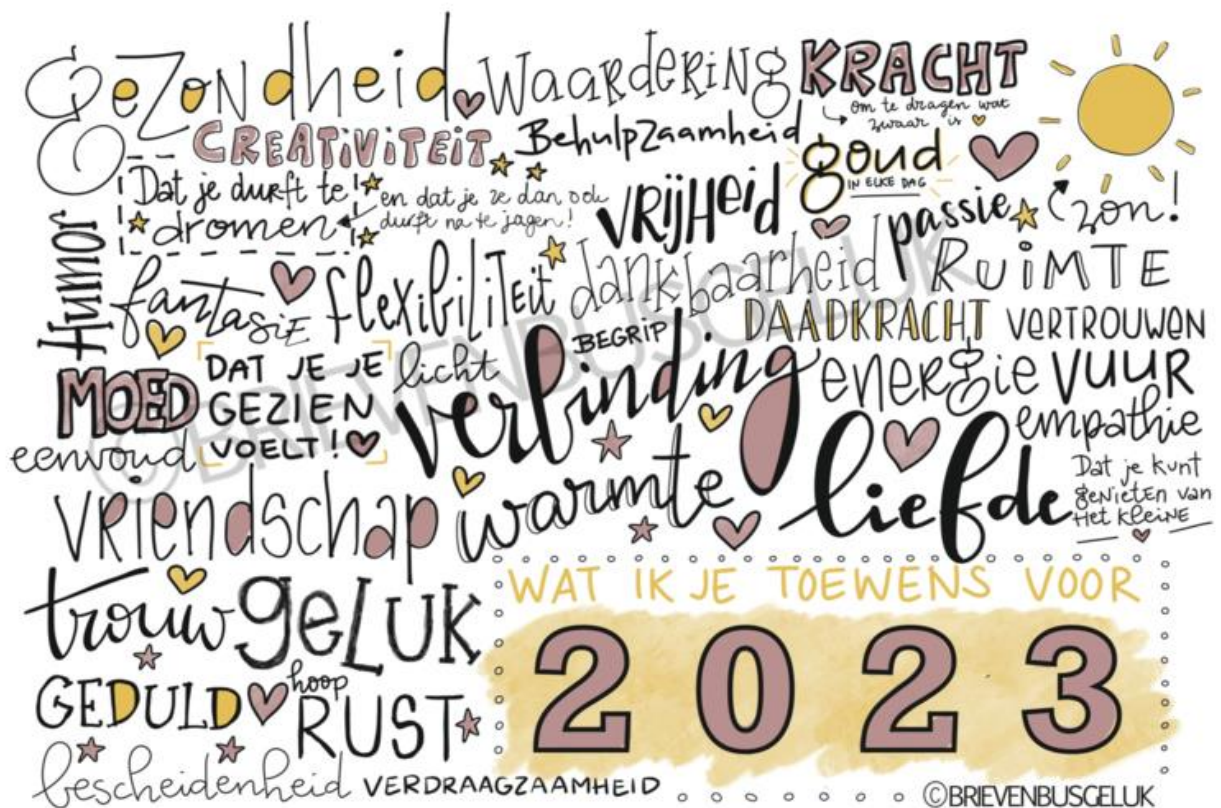 GeZoNdheid
WaaRdeRiNg
KRACHT
om te dragen wat
zwaar is
CREATiViTEiT
BehulpZaamheid
goud
IN ELKE DAG
Dat je durft te
dromen
en dat je ze dan ook
durft na te jagen!
VRijHeid
passie
zon!
Humor
fantasiE
flexibiliTEit
dankbaarheid
RUiMTE
BEGRIP
DAADKRACHT
VERTROUWEN
MOED
DAT JE JE
GEZIEN
VOELT!
licht
verbinding
eNeRgie
VUUR
empathie
eenvoud
vRiendschap
warmte
liefde
Dat je kunt
geNieteN van
Het KleiNE
trouw
geLUK
WAT IK JE TOEWENS VOOR
2023
GEDULD
hoop
RUST
bescheidenheid
VERDRAAGZAAMHEID
©BRIEVENBUSGELUK
©BRIEVENBUSGELUK